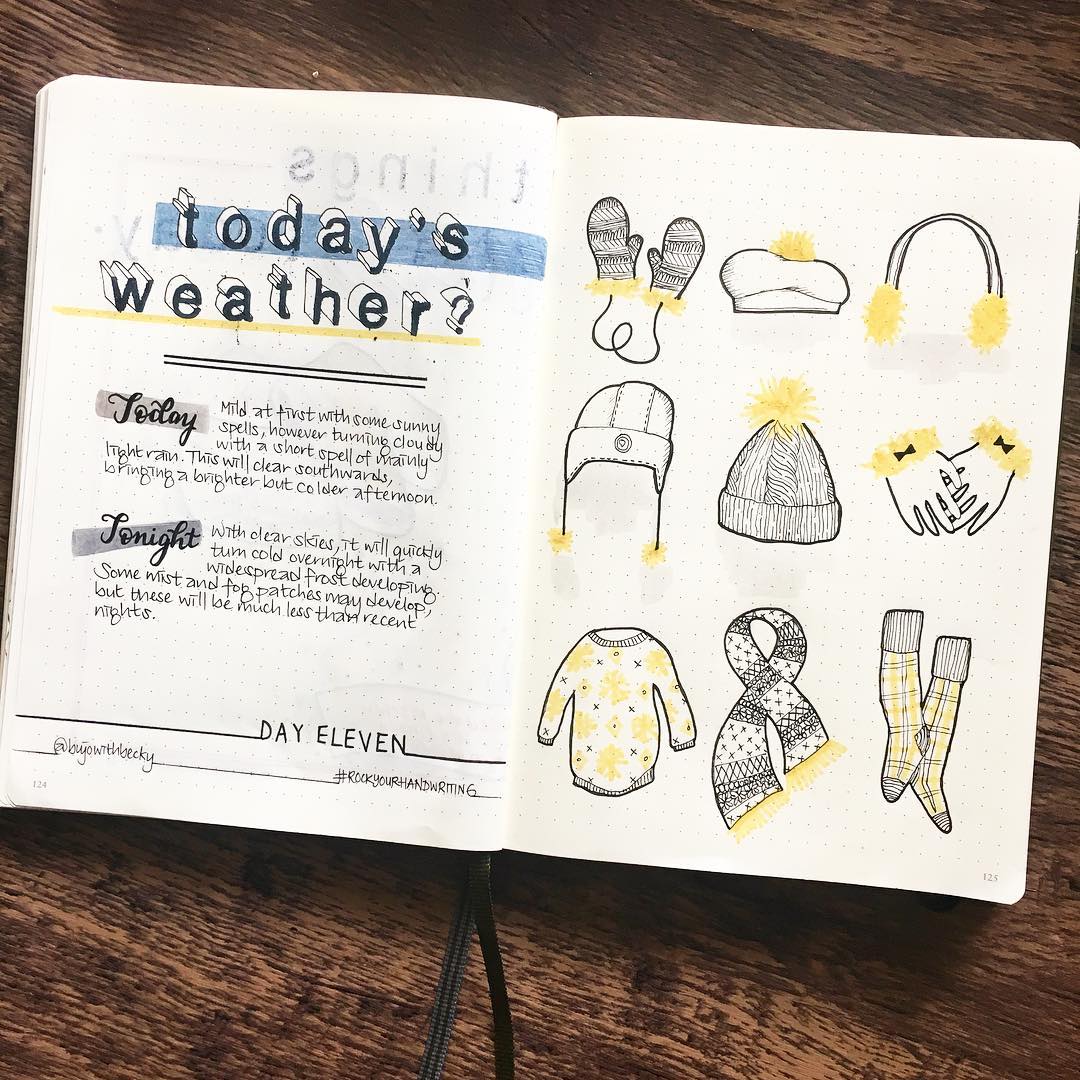 things
today's
weather?
Today Mild at first with some sunny
spells, however turning cloudy
with a short spell of mainly
light rain. This will clear southwards,
bringing a brighter but colder afternoon.
Tonight With clear skies, it will quickly
turn cold overnight with a
widespread frost developing.
Some mist and fog patches may develop,
but these will be much less than recent
nights.
DAY ELEVEN
@bujowithbecky
#ROCKYOURHANDWRITING
124
125